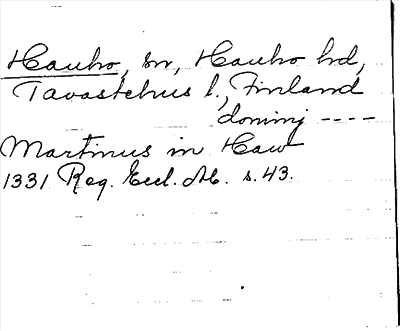 Hauho, sn, Hauho hd,
Tavastehus l., Finland
dominj ----
Martinus in Haw
1331 Reg. Eccl. Ab. s. 43.